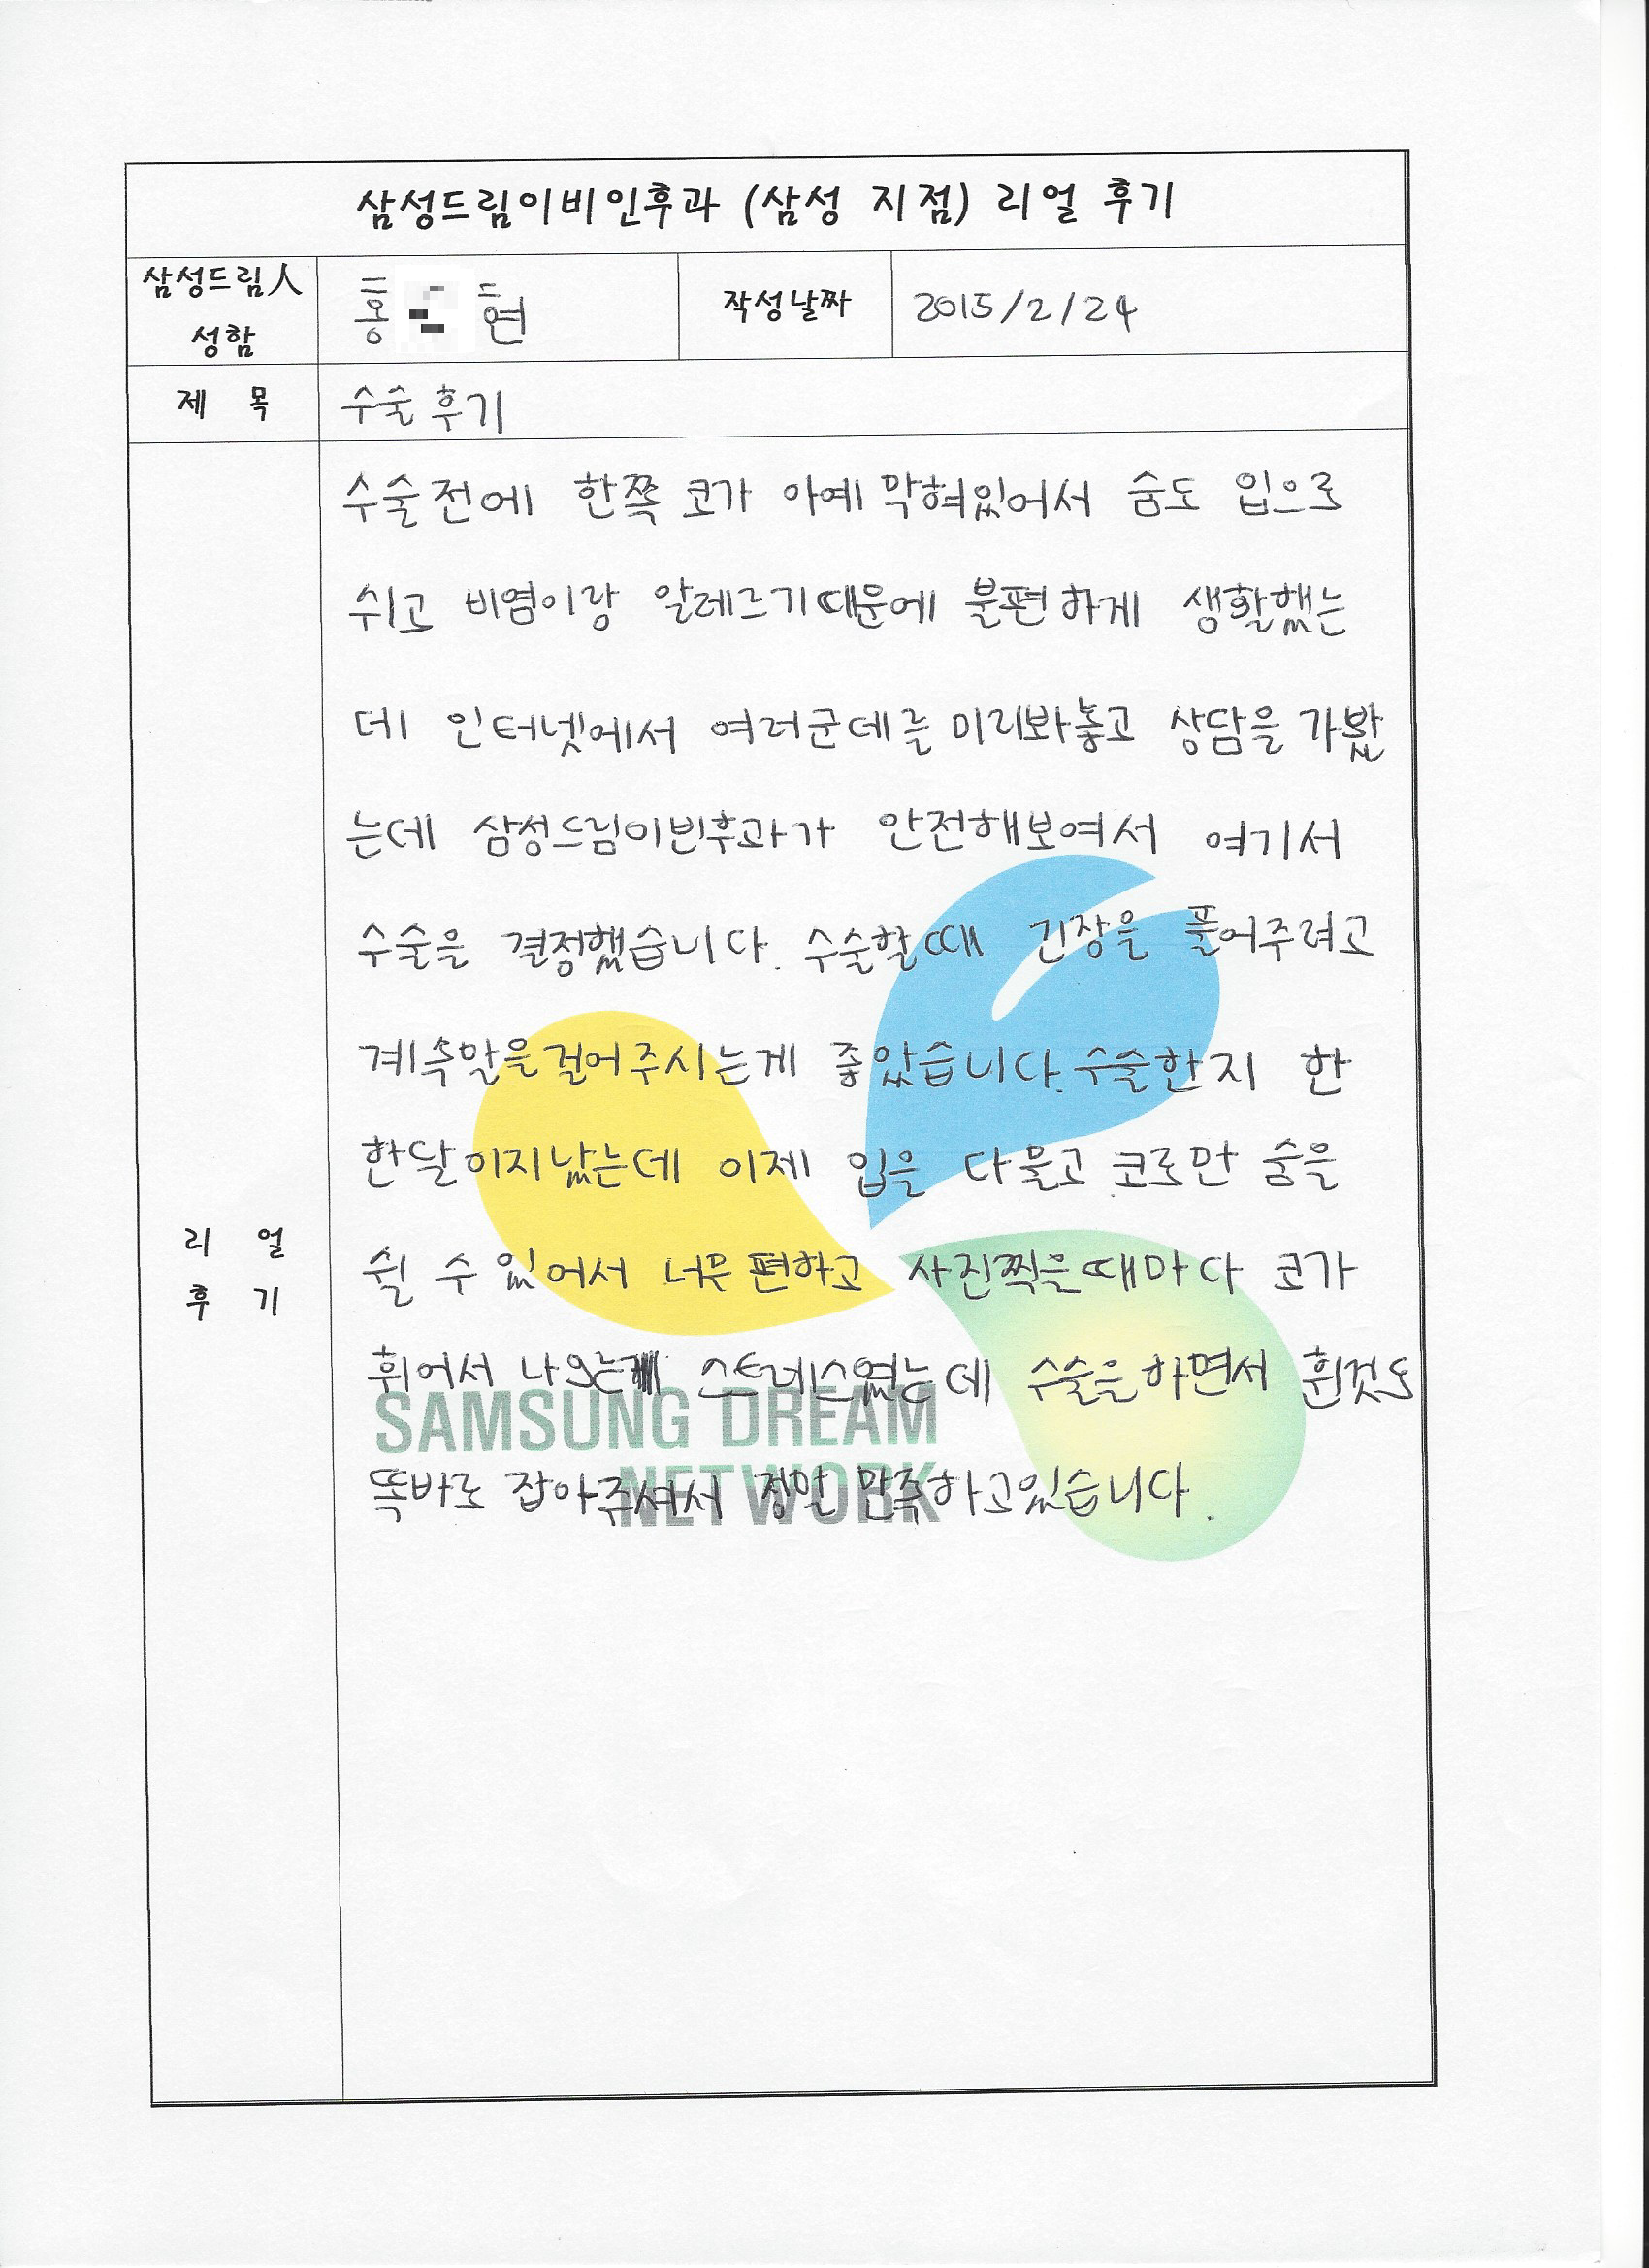 삼성드림이비인후과 (삼성 지점) 리얼 후기
삼성드림人
성함
홍 현
작성날짜
2015/2/24
제 목
수술 후기
수술전에 한쪽 코가 아예 막혀있어서 숨도 입으로
쉬고 비염이랑 알레르기때문에 불편하게 생활했는
데 인터넷에서 여러군데를 미리봐놓고 상담을 가봤
는데 삼성드림이빈후과가 안전해보여서 여기서
수술을 결정했습니다. 수술할때 긴장을 풀어주려고
계속말을걸어주시는게 좋았습니다. 수술한지 한
한달이지났는데 이제 입을 다물고 코로만 숨을
쉴 수 있어서 너무 편하고 사진찍을때마다 코가
휘어서 나오는게 스트레스였는데 수술을하면서 휜것도
똑바로 잡아주셔서 정말 만족하고있습니다.
리 얼
후 기
SAMSUNG DREAM
NETWORK